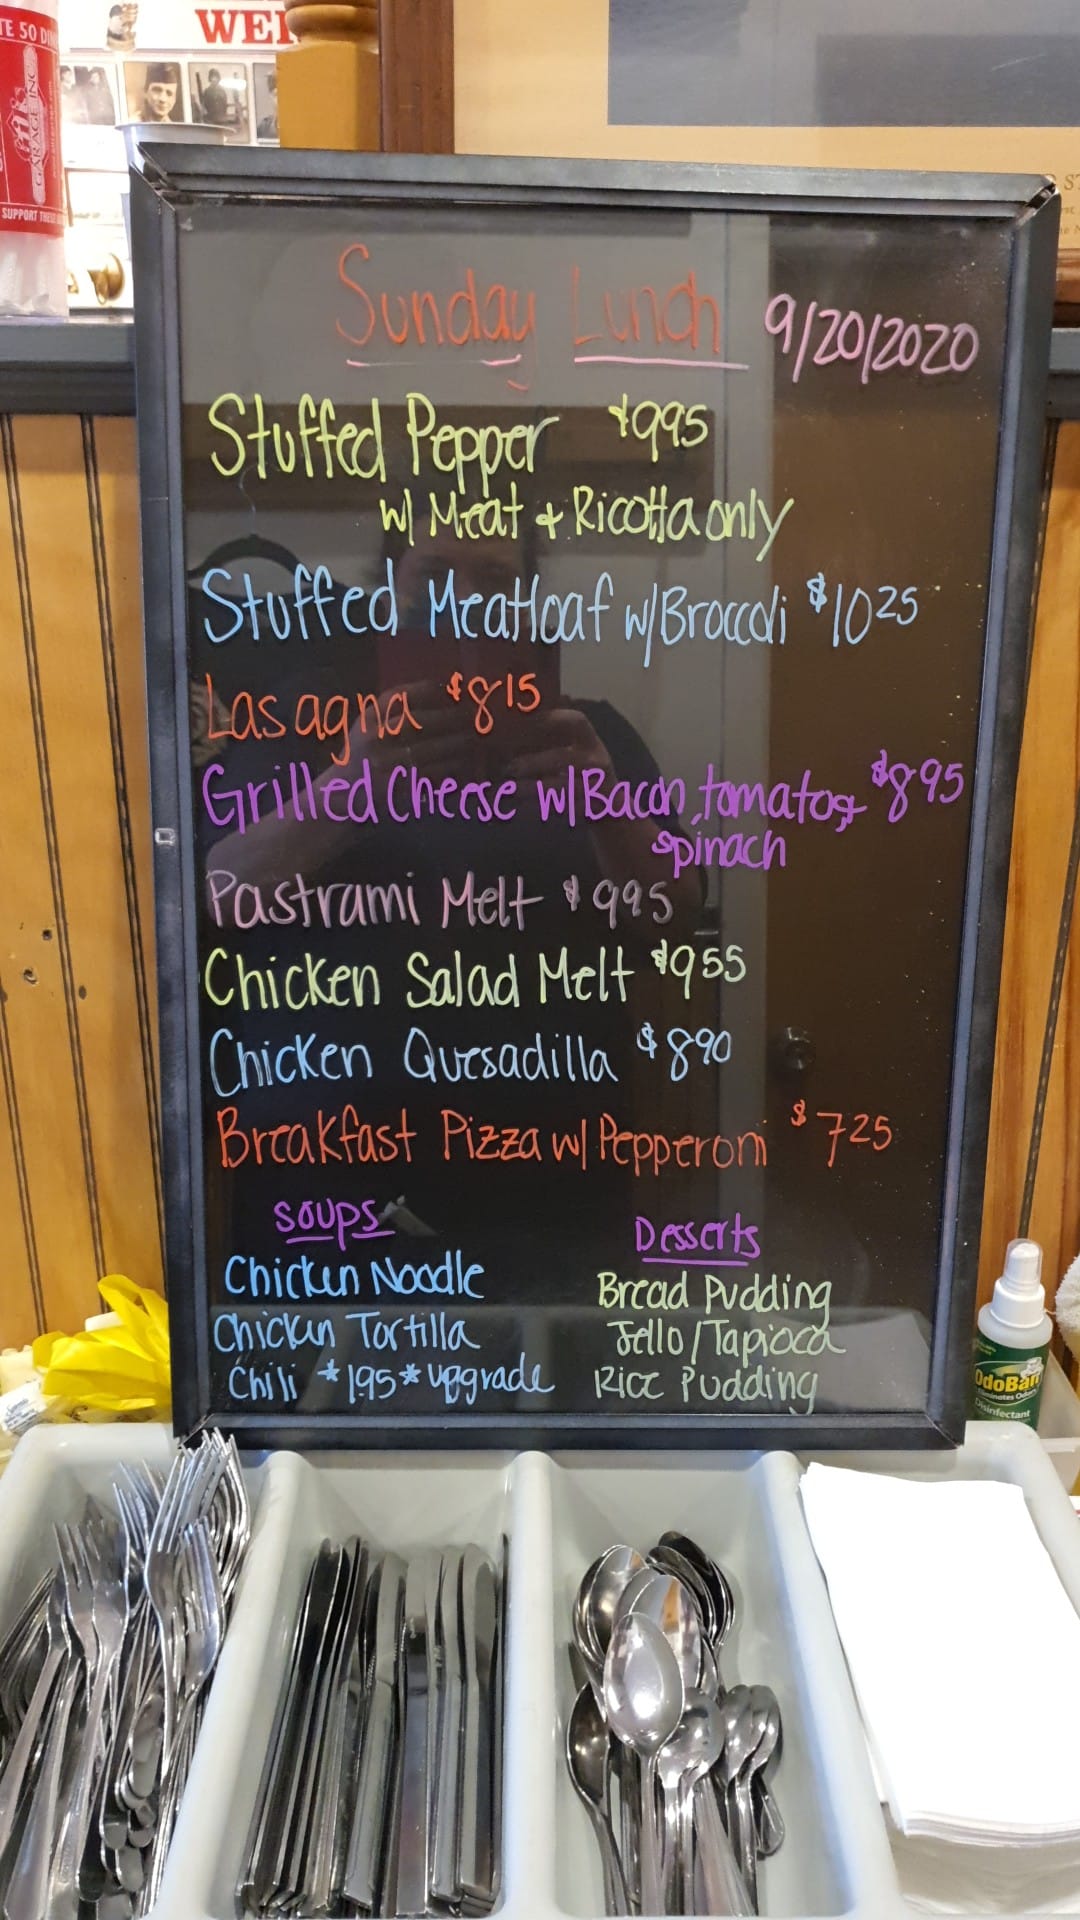 WE
TE 50 DIN
GARAGE INC
SUPPORT THESE
Sunday Lunch 9/20/2020
Stuffed Pepper $995
w/ Meat & Ricotta only
Stuffed Meatloaf w/Broccoli $1025
Lasagna $815
Grilled Cheese w/Bacon, tomato, & $895
spinach
Pastrami Melt $995
Chicken Salad Melt $955
Chicken Quesadilla $890
Breakfast Pizza w/ Pepperoni $725
Soups
Chicken Noodle
Chicken Tortilla
Chili *1.95* upgrade
Desserts
Bread Pudding
Jello/Tapioca
Rice Pudding
OdoBan
Eliminates Odors
Disinfectant